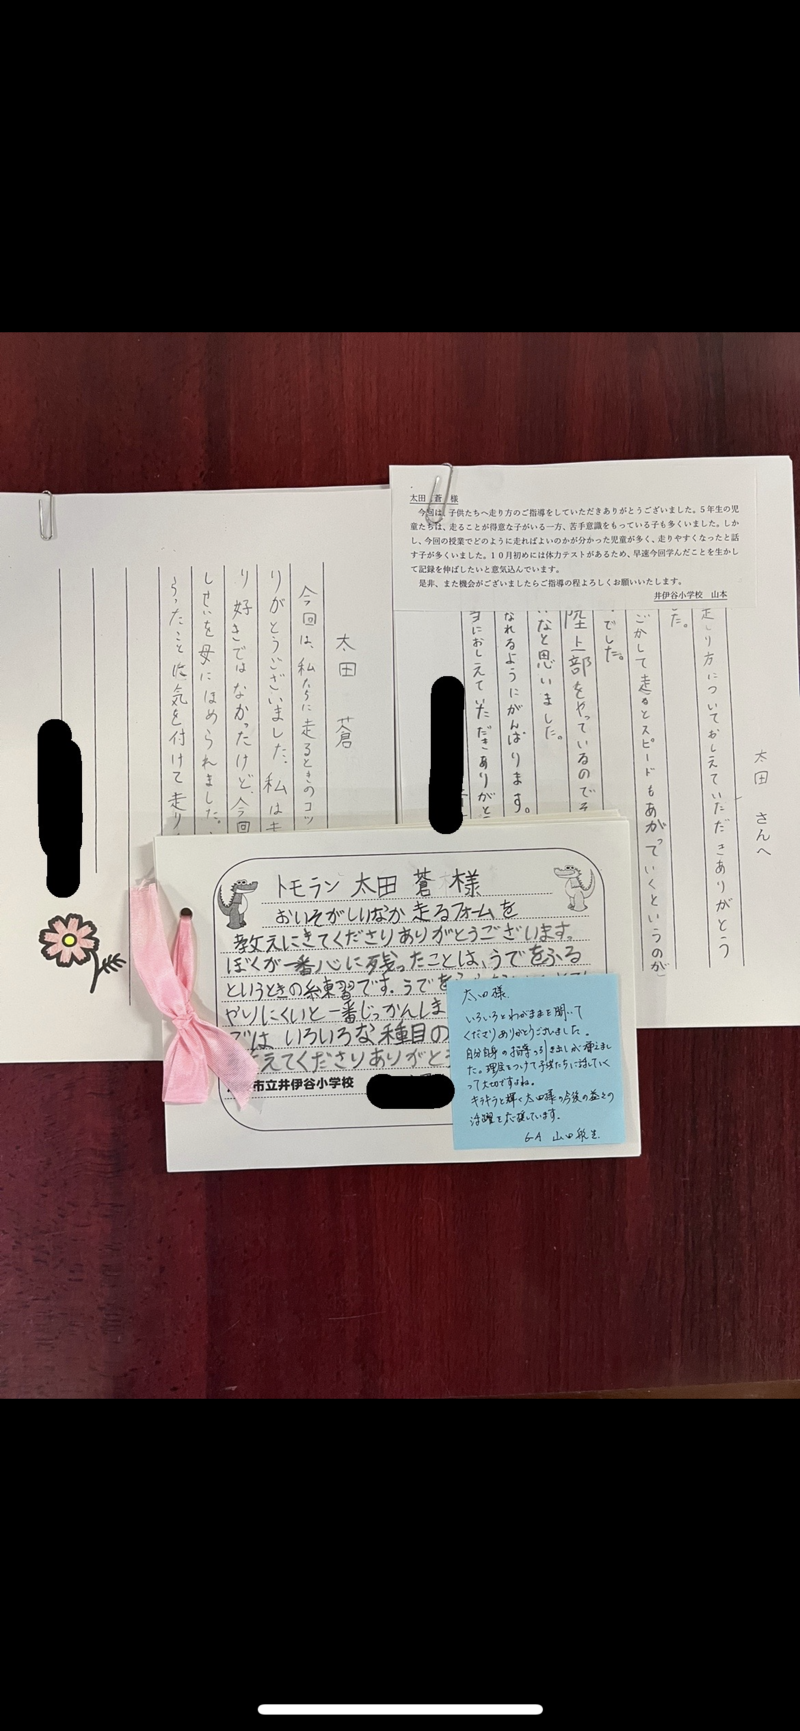 太田 蒼 様
今回は、子供たちへ走り方のご指導をしていただきありがとうございました。５年生の児
童たちは、走ることが得意な子がいる一方、苦手意識をもっている子も多くいました。しか
し、今回の授業でどのように走ればよいのかが分かった児童が多く、走りやすくなったと話
す子が多くいました。１０月初めには体力テストがあるため、早速今回学んだことを生かし
て記録を伸ばしたいと意気込んでいます。
是非、また機会がございましたらご指導の程よろしくお願いいたします。
井伊谷小学校 山本
太田 さんへ
走り方についておしえていただきありがとう
た。
ごかして走るとスピードもあがっていくというのが
でした。
陸上部をやっているのでそ
いなと思いました。
なれるようにがんばります。
当におしえていただきありがと
太田 蒼
今回は、私たちに走るときのコッ
りがとうございました。私は走
り好きではなかったけど、今回
しせいを母にほめられました。
らったことに気を付けて走り
トモラン 太田 蒼 様
おいそがしいなか 走るフォームを
教えにきてくださりありがとうございます。
ぼくが一番心に残ったことは、うでをふる
というときの練習です。うでを
やりにくいと一番じっかんしま
では、いろいろな種目の
えてくださりありがとう
市立井伊谷小学校
太田様
いろいろとわがままを聞いて
くださりありがとうございました。
自分自身の指導の引き出しが増えまし
た。理由をつけて子供たちに話していく
って大切ですね。
キラキラと輝く太田様の今後の益々の
活躍を応援しています。
6-A 山田